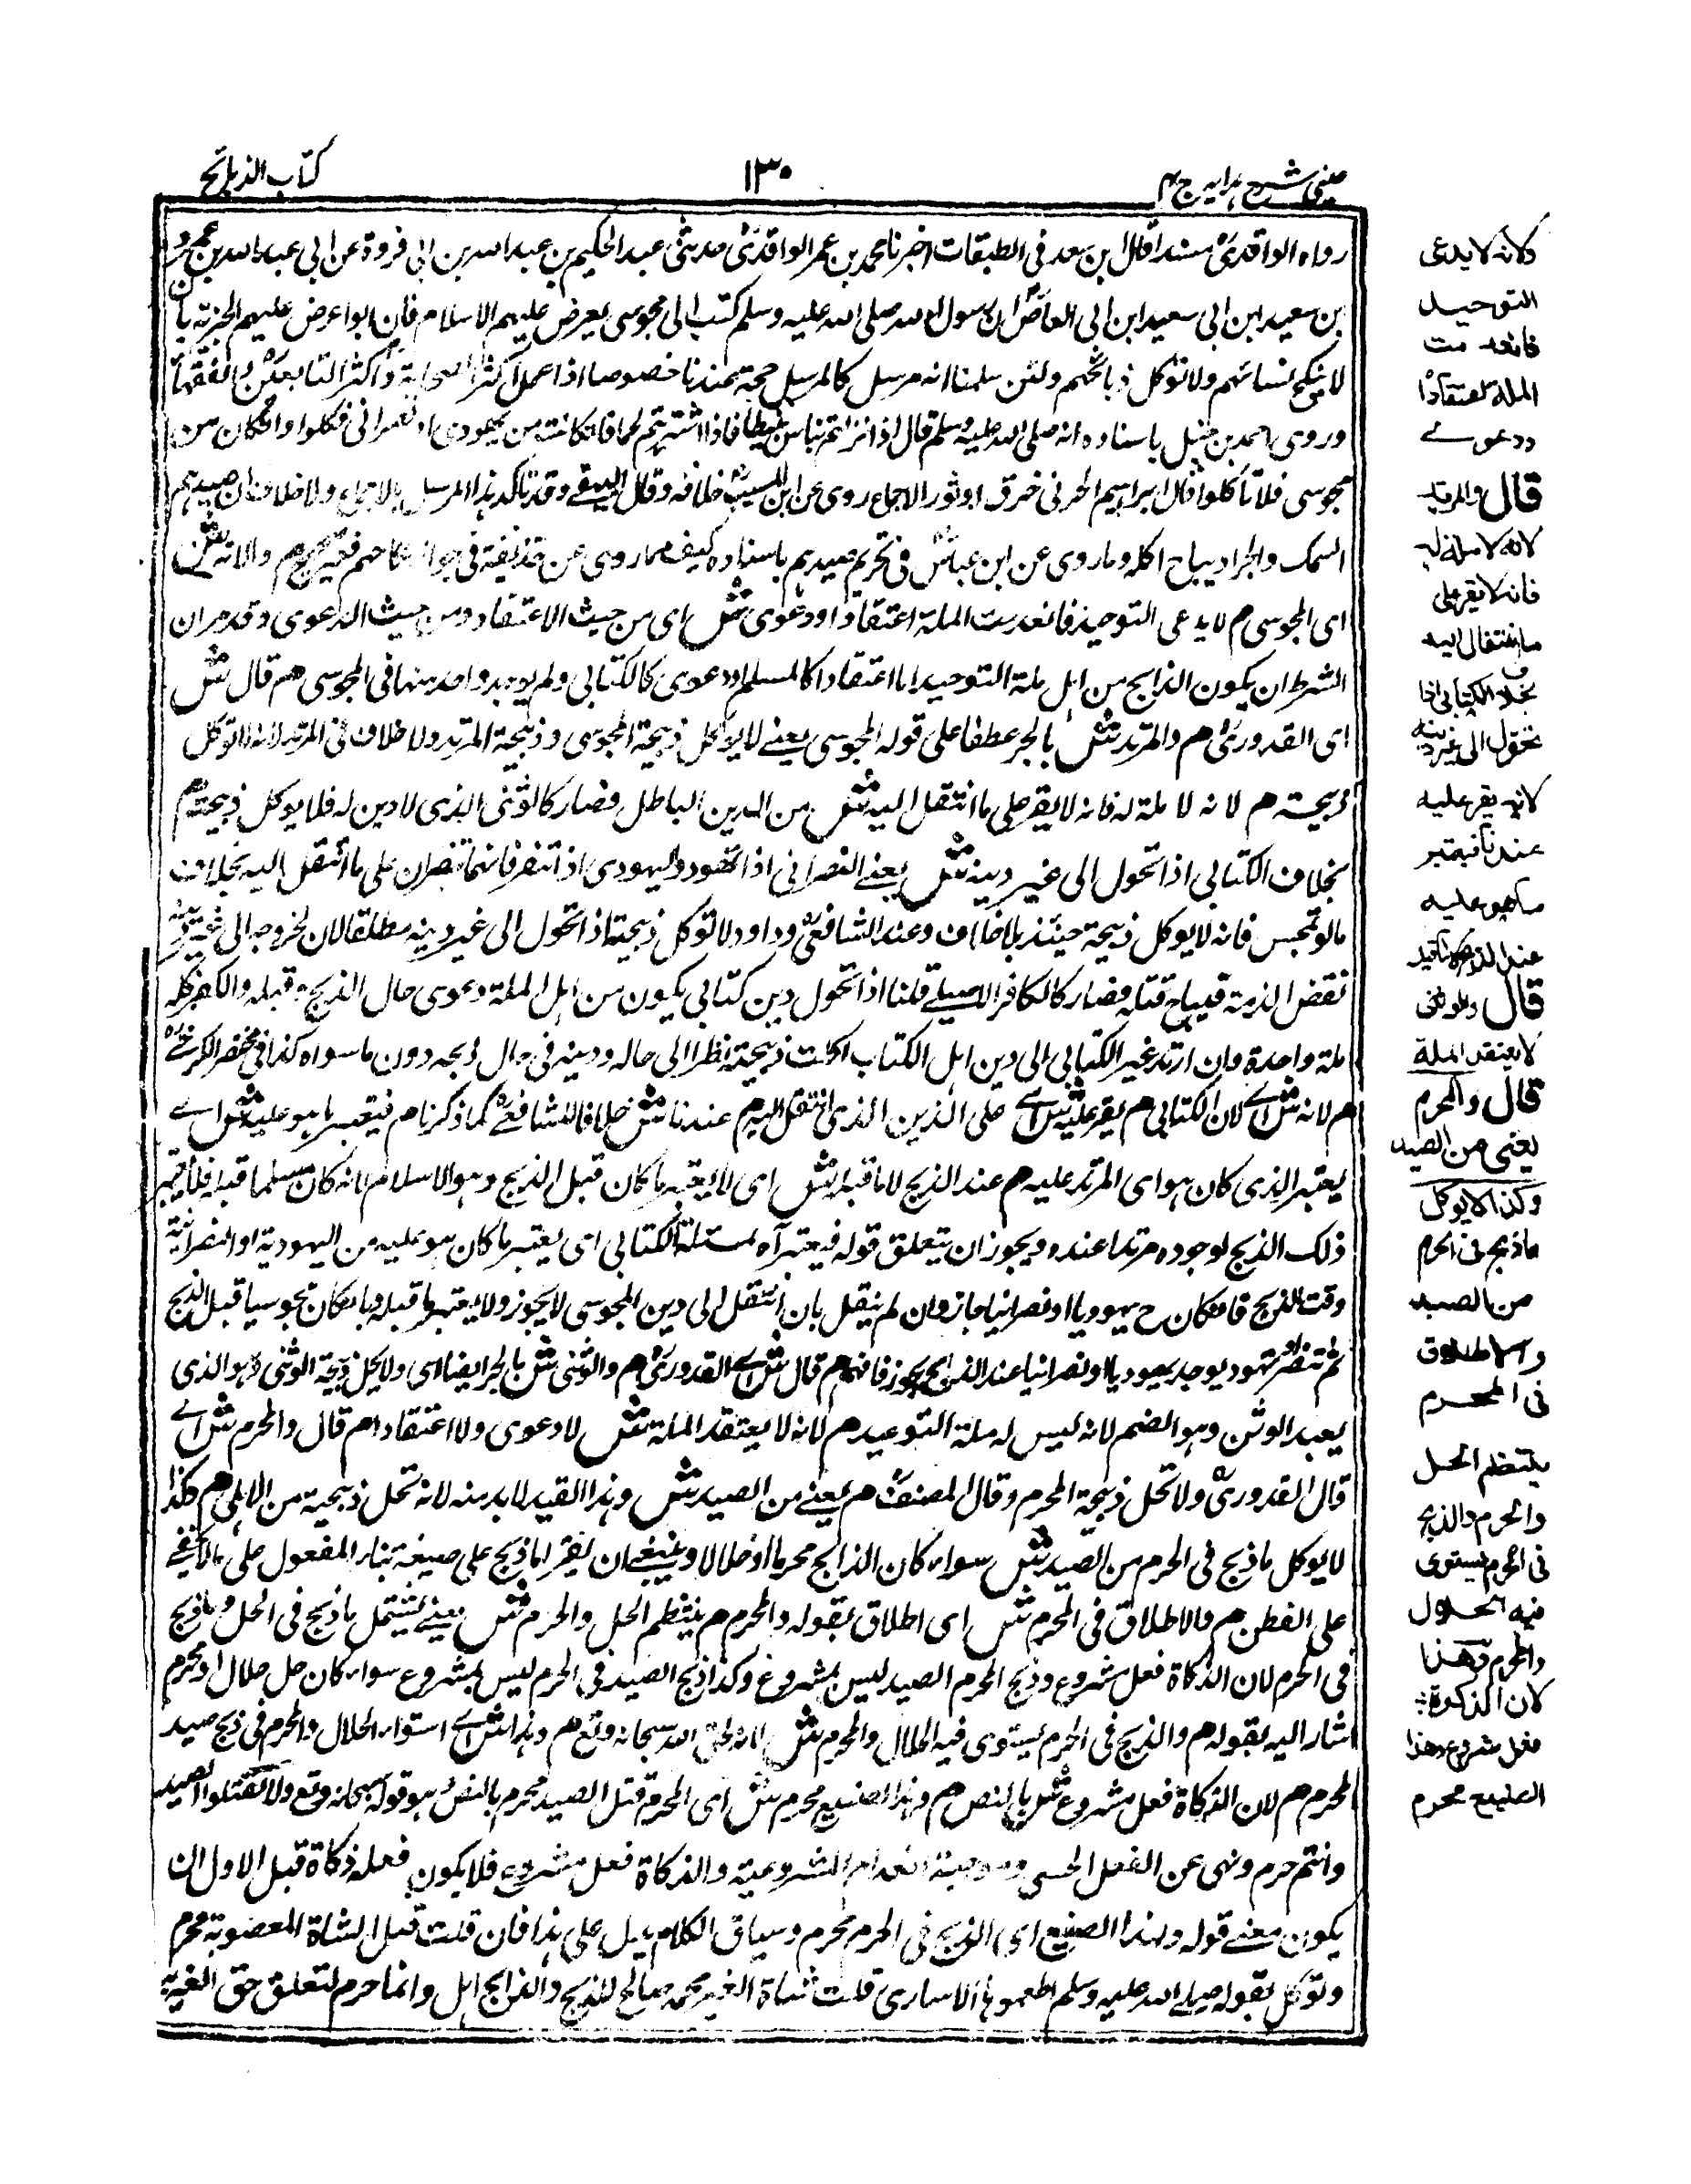 عینی شرح ہدایہ ج ۴
١٣٠
کتاب الذبائح
رواہ الواقدی مسندا قال ابن سعد فی الطبقات اخبرنا محمد بن عمر الواقدی حدثنی عبد الحکیم بن عبد اللہ بن ابی فروة عن ابی عبد اللہ بن عمرو
بن سعید ابن ابی سعید ابن ابی العاص ان رسول اللہ صلی اللہ علیہ وسلم کتب الی مجوسی یعرض علیہم الاسلام فان ابوا عرض علیہم الجزیة بان
لا ینکح نسائہم ولا توکل ذبائحہم ولئن سلمنا انہ مرسل کالمرسل حجة عندنا خصوصا اذا عمل اکثر الصحابة و اکثر التابعین والفقہاء
وروی احمد بن حنبل باسنادہ انہ صلی اللہ علیہ وسلم قال اذا نزلتم بناس فاذا اشتریتم لحما فان کانت من یہودی او نصرانی فکلوا وان کان من
مجوسی فلا تأکلوا قال ابراہیم الحربی خرق ابو ثور الاجماع روی عن ابن المسیب خلافہ وقال البیہقی وقد تاکد ہذا المرسل بالاجماع ولا خلاف ان صیدہم
السمک والجراد یباح اکلہ وما روی عن ابن عباس فی تحریم صیدہم باسنادہ کیف مما روی عن حذیفة فی جواز نکاحہم فغیر صحیح م ولانہ ش
ای المجوسی م لا یدعی التوحید فانعدمت الملة اعتقادا ودعوی ش ای من حیث الاعتقاد ومن حیث الدعوی وقد مر ان
الشرط ان یکون الذابح من اہل ملة التوحید اما اعتقادا کالمسلم او دعوی کالکتابی ولم یوجد واحد منہما فی المجوسی م قال ش
ای القدوری م والمرتد ش بالجر عطفا علی قولہ المجوسی یعنے لا یوکل ذبیحة المجوسی وذبیحة المرتد ولا خلاف فی المرتد لانہ لا توکل
ذبیحتہ م لانہ لا ملة لہ فانہ لا یقر علی ما انتقل الیہ ش من الدین الباطل فصار کالوثنی الذی لا دین لہ فلا یوکل ذبیحتہ م
بخلاف الکتابی اذا تحول الی غیر دینہ ش یعنے النصرانی اذا تہود والیہودی اذا تنصر فانہما یقران علی ما انتقل الیہ بخلاف
ما لو تمجس فانہ لا یوکل ذبیحتہ حینئذ بلا خلاف وعند الشافعی وداود لا توکل ذبیحتہ اذا تحول الی غیر دینہ مطلقا لان لخروجہ الی غیر دینہ
نقض الذمة فیباح قتلہ فصار کالکافر الاصلے قلنا اذا تحول دین کتابی یکون من اہل الملة دعوی حال الذبح وقبلہ والکفر کلہ
ملة واحدة وان ارتد غیر الکتابی الی دین اہل الکتاب اکلت ذبیحتہ نظرا الی حالہ ودینہ فی حال ذبحہ دون ما سواہ کذا فی مختصر الکرخے
م لانہ ش اے لان الکتابی م یقر علیہ ش اے علی الدین الذی انتقل الیہ م عندنا ش خلافا للشافعے کما ذکرنا م فیعتبر ما ہو علیہ ش اے
یعتبر الذی کان ہو ای المرتد علیہ م عند الذبح لا ما قبلہ ش ای لا یعتبر ما کان قبل الذبح وہو الاسلام لانہ کان مسلما قبلہ فلا یعتبر
ذلک الذبح لوجودہ مرتدا عندہ ویجوز ان یتعلق قولہ فیعتبر آہ بمسئلة الکتابی ای یعتبر ما کان ہو علیہ من الیہودیة او النصرانیة
وقت الذبح فان کان ح یہودیا او نصرانیا جاز وان لم ینقل بان انتقل الی دین المجوسی لا یجوز ولا یعتبر ما قبلہ وما کان مجوسیا قبل الذبح
ثم تنصر او تہود یوجد یہودیا او نصرانیا عند الذبح یجوز فافہم م قال ش اے القدوری م والوثنی ش بالجر ایضا ای ولا یحل ذبیحة الوثنی وہو الذی
یعبد الوثن وہو الصنم لانہ لیس لہ ملة التوحید م لانہ لا یعتقد الملة ش لا دعوی ولا اعتقادا م قال والمحرم ش اے
قال القدوری ولا تحل ذبیحة المحرم وقال المصنف م یعنے من الصید ش وہذا القید لا بد منہ لانہ تحل ذبیحتہ من الاہلی م وکذا
لا یوکل ما ذبح فی الحرم من الصید ش سواء کان الذابح محرما او حلالا وینبغے ان یقرا ما ذبح علی صیغة بناء المفعول علی ما لا یخفے
علی الفطن م والاطلاق فی المحرم ش ای اطلاق بقولہ والمحرم م ینتظم الحل والحرم ش یعنے یشتمل ما ذبح فی الحل وما ذبح
فی الحرم لان الذکاة فعل مشروع وذبح المحرم الصید لیس بمشروع وکذا ذبح الصید فی الحرم لیس بمشروع سواء کان حل حلال او محرم
اشار الیہ بقولہ م والذبح فی الحرم یستوی فیہ الحلال والمحرم ش لانہ لحق اللہ سبحانہ وتع م وہذا ش اے استواء الحلال والمحرم فی ذبح صید
الحرم م لان الذکاة فعل مشروع ش بالنص م وہذا الصنیع محرم ش ای المحرم قتل الصید محرم بالنص وہو قولہ سبحانہ وتع ولا تقتلوا الصید
وانتم حرم ونہی عن الفعل الحسی وموجبہ انعدام المشروعیة والذکاة فعل مشروع فلا یکون فعلہ ذکاة قبل الاول ان
یکون معنے قولہ وہذا الصنیع ای الذبح فی الحرم محرم وسیاق الکلام یدل علی ہذا فان قلت قبل الشاة المغصوبة محرم
وتوکل بقولہ صلے اللہ علیہ وسلم اطعموہا الاساری قلت شاة الغیر محمہ صالح للذبح والذابح اہل وانما حرم لتعلق حق الغیر بہ
ولانہ لا یدعی
التوحید
فانعدمت
الملة اعتقادا
ودعوے
قال والمرتد
لانہ لا ملة لہ
فانہ لا یقر علی
ما انتقل الیہ
بخلاف الکتابی اذا
تحول الی غیر دینہ
لانہ یقر علیہ
عندنا فیعتبر
ما ہو علیہ
عند الذبح لا ما قبلہ
قال والوثنی
لا یعتقد الملة
قال والمحرم
یعنی من الصید
وکذا لا یوکل
ما ذبح فی الحرم
من الصید
والاطلاق
فی المحرم
ینتظم الحل
والحرم والذبح
فی الحرم یستوی
فیہ الحلال
والمحرم وہذا
لان الذکوة
فعل مشروع وہذا
الصنیع محرم